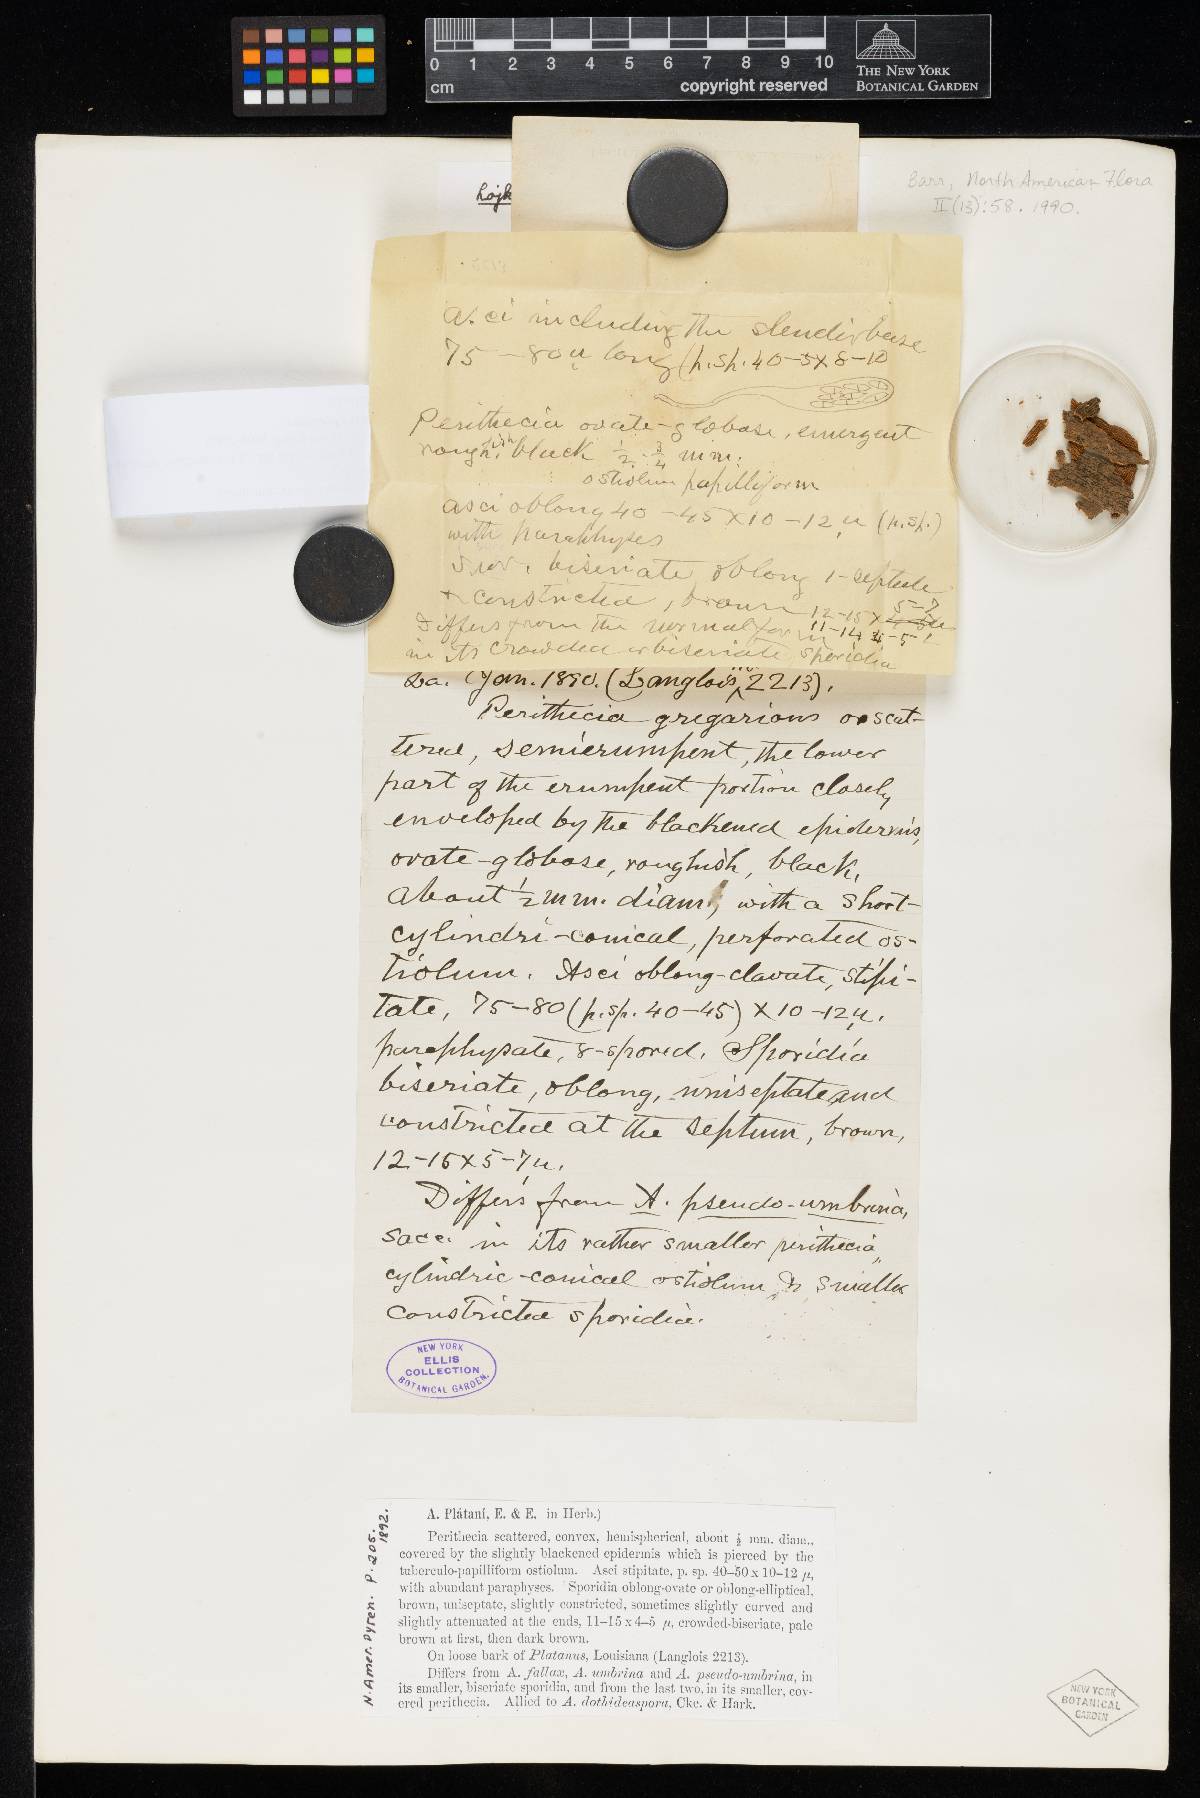 0 1 2 3 4 5 6 7 8 9 10
cm
copyright reserved
THE NEW YORK
BOTANICAL GARDEN
Barr, North American Flora
II (13):58. 1990.
Lojk
2213
Asci including the slender base
75-80µ long (p.sp. 40-5x8-10
Perithecia ovate-globose, emergent
roughish black ½-¾ mm.
ostiolum papilliform
asci oblong 40-45x10-12µ (p.sp.)
with paraphyses
biseriate oblong 1-septate
& constricted, brown 12-15x 5-7
Differs from the normal form 11-14 4-5
in its crowded or biseriate sporidia
La. Jan. 1890. (Langlois, no. 2213).
Perithecia gregarious or scat-
tered, semierumpent, the lower
part of the erumpent portion closely
enveloped by the blackened epidermis,
ovate-globose, roughish, black,
about ½ mm. diam, with a short-
cylindri-conical, perforated os-
tiolum. Asci oblong-clavate, stipi-
tate, 75-80 (p.sp. 40-45) x 10-12µ.
paraphysate, 8-spored. Sporidia
biseriate, oblong, uniseptate and
constricted at the septum, brown,
12-15x5-7µ.
Differs from A. pseudo-umbrina,
Sacc. in its rather smaller perithecia,
cylindric-conical ostiolum, & smaller
constricted sporidia.
NEW YORK
ELLIS
COLLECTION
BOTANICAL GARDEN.
N. Amer. Pyren. P. 205.
1892.
A. Plátani, E. & E. in Herb.)
Perithecia scattered, convex, hemispherical, about ½ mm. diam.,
covered by the slightly blackened epidermis which is pierced by the
tuberculo-papilliform ostiolum. Asci stipitate, p. sp. 40–50 x 10–12 µ,
with abundant paraphyses. Sporidia oblong-ovate or oblong-elliptical,
brown, uniseptate, slightly constricted, sometimes slightly curved and
slightly attenuated at the ends, 11–15 x 4–5 µ, crowded-biseriate, pale
brown at first, then dark brown.
On loose bark of Platanus, Louisiana (Langlois 2213).
Differs from A. fallax, A. umbrina and A. pseudo-umbrina, in
its smaller, biseriate sporidia, and from the last two, in its smaller, cov-
ered perithecia. Allied to A. dothideaspora, Cke. & Hark.
NEW YORK
BOTANICAL
GARDEN